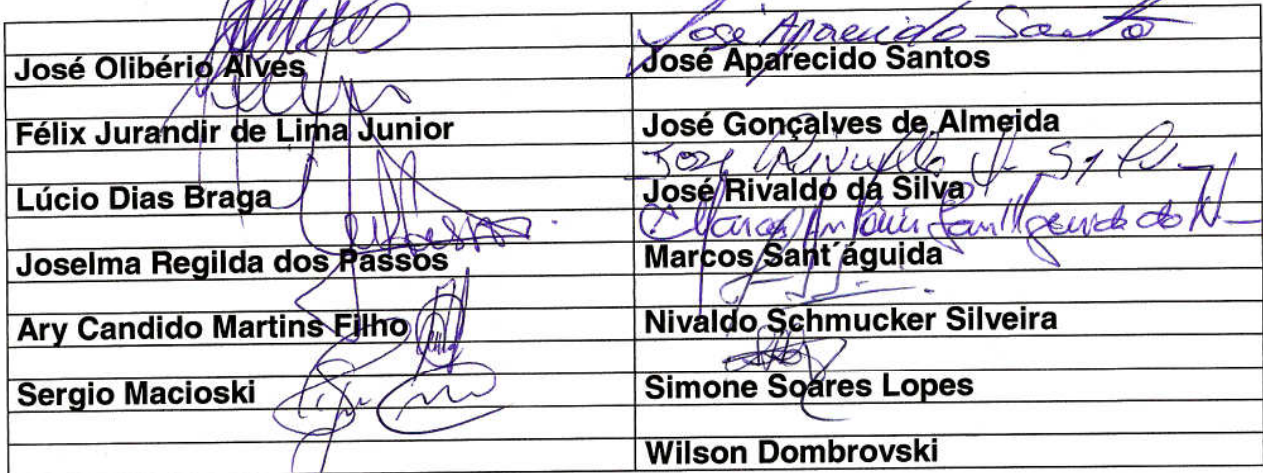 José Aparecido Santos
José Olibério Alves
José Aparecido Santos
Félix Jurandir de Lima Junior
José Gonçalves de Almeida
José Rivaldo da Silva
Lúcio Dias Braga
José Rivaldo da Silva
Joselma Regilda dos Passos
Marcos Sant´águida
Ary Candido Martins Filho
Nivaldo Schmucker Silveira
Sergio Macioski
Simone Soares Lopes
Wilson Dombrovski